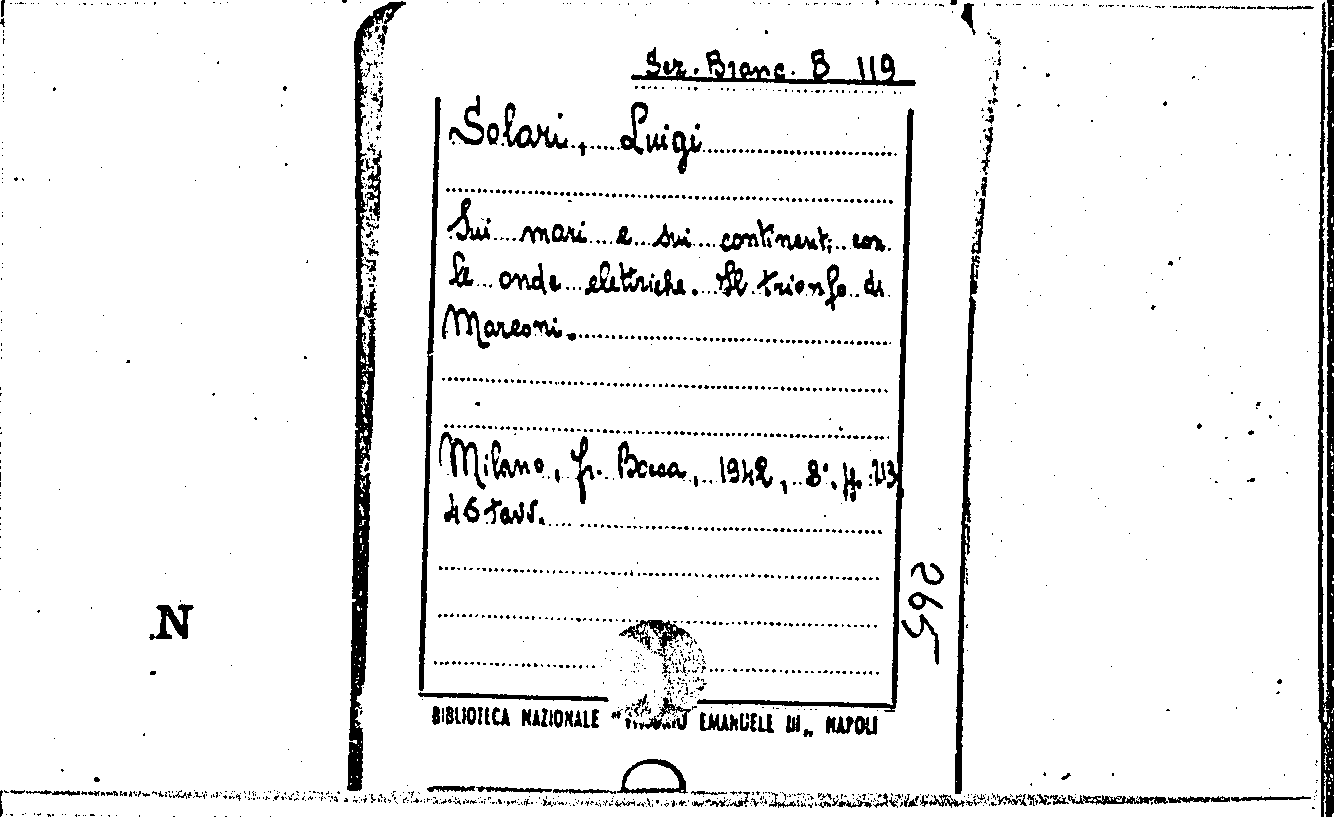 Sez. Branc. B 119
Solari, Luigi
Sui mari e sui continenti con
le onde elettriche. Il trionfo di
Marconi.
Milano, fr. Bocca, 1942, 8°. pp. 213
46 tavv.
265
N
BIBLIOTECA NAZIONALE "VITTORIO EMANUELE III„ NAPOLI